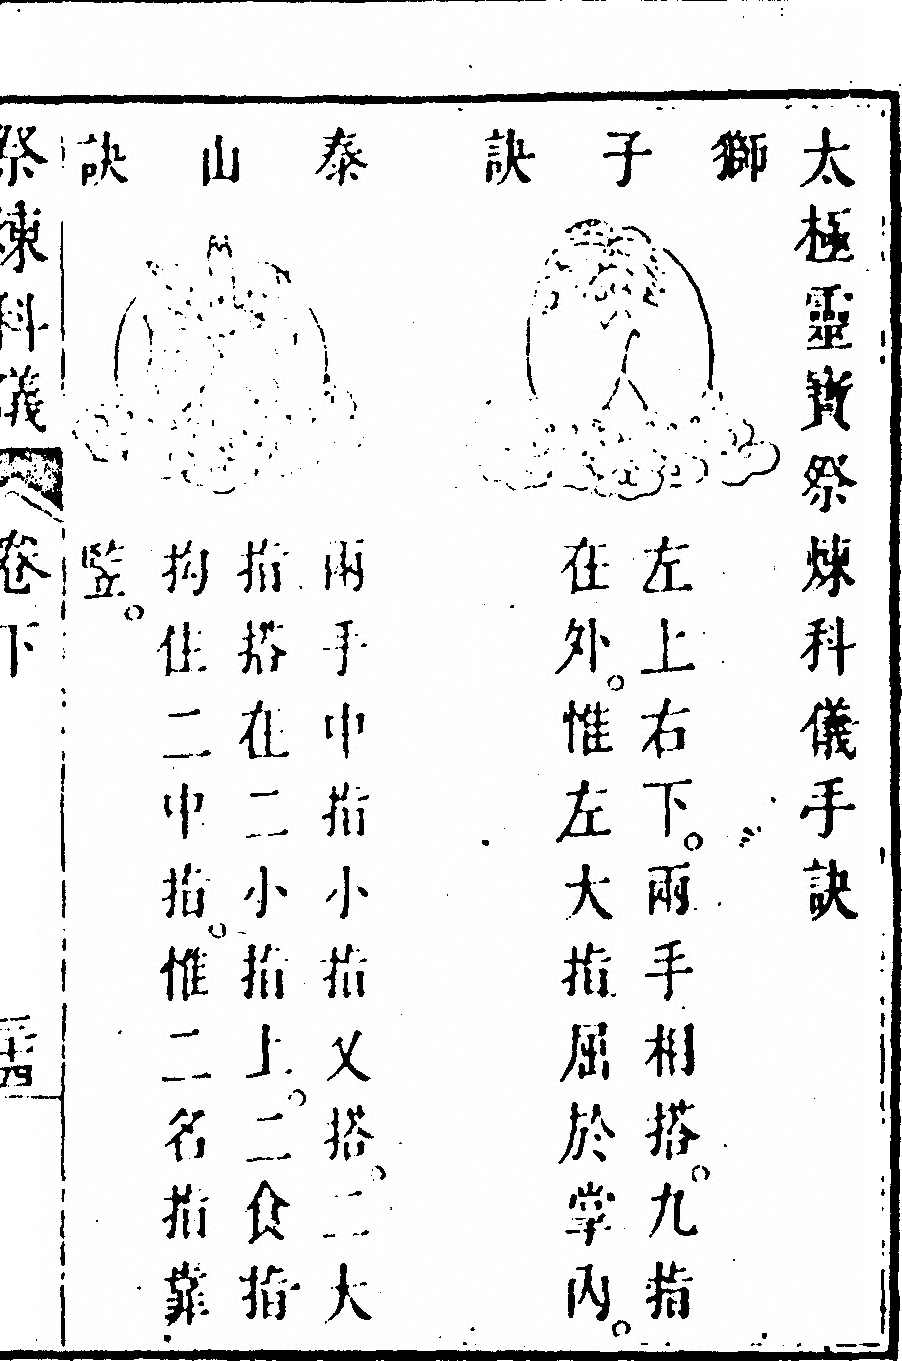 太極靈寶祭煉科儀手訣
獅子訣
左上右下。兩手相搭。九指
在外。惟左大指屈於掌內。
泰山訣
兩手中指小指叉搭。二大
指搭在二小指上。二食指
拘住二中指。惟二名指靠
竪。
祭煉科儀
卷下
三十四